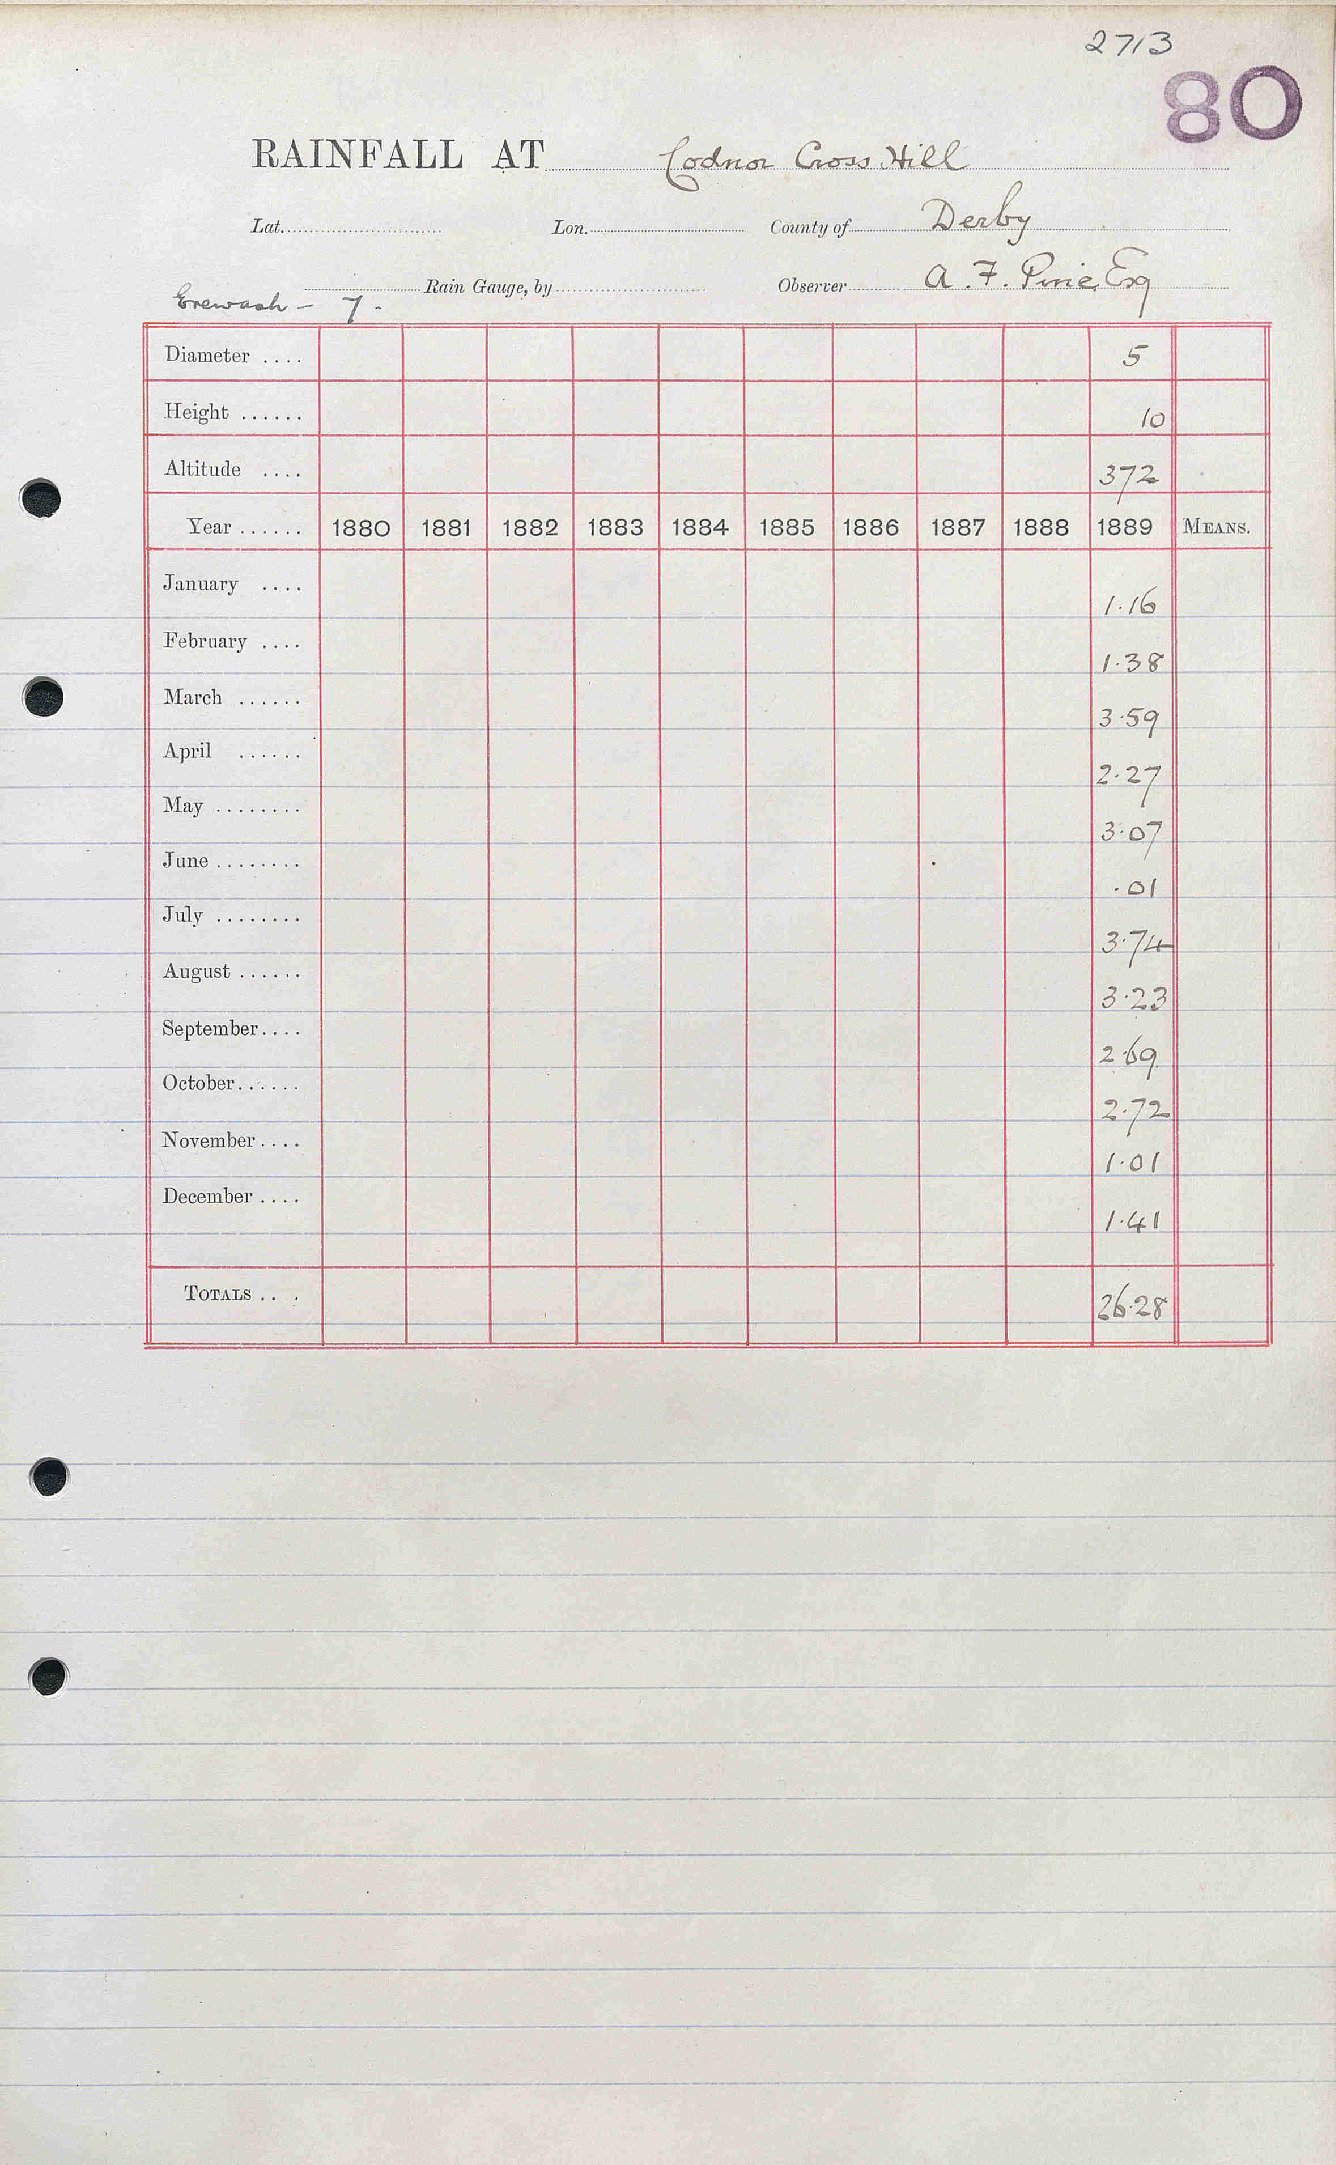 2713
80
RAINFALL AT Codnor Cross Hill
Lat. Lon. County of Derby
Rain Gauge, by Observer A. F. Pirie, Esq
Erewash - 7 -
Diameter .... 5
Height ...... 10
Altitude .... 372
Year ...... 1880 1881 1882 1883 1884 1885 1886 1887 1888 1889 MEANS.
January .... 1.16
February .... 1.38
March ...... 3.59
April ...... 2.27
May ........ 3.07
June ........ .01
July ........ 3.74
August ...... 3.23
September .... 2.69
October ...... 2.72
November .... 1.01
December .... 1.41
TOTALS ... 26.28